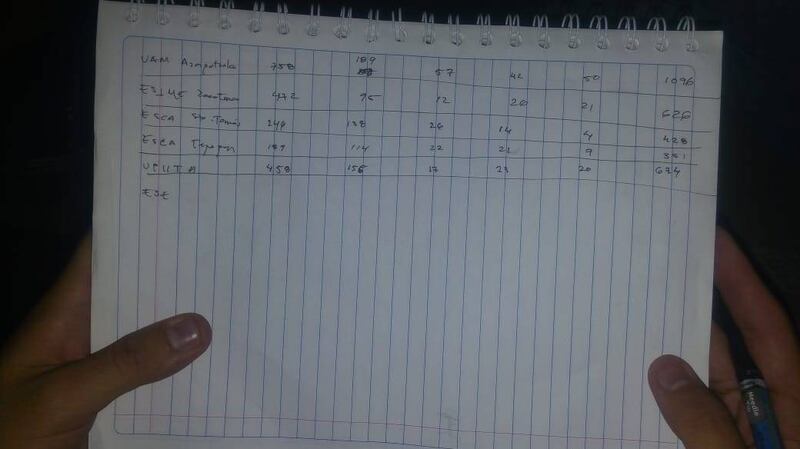 UAM 758 189 57 42 50 1096
ESIME 472 95 12 21 626
ESCA Sto. Tomás 246 138 26 14 4 428
ESCA Tepepan 114 22 21 9
UPIITA 458 156 17 23 20 674
ESE
Needle